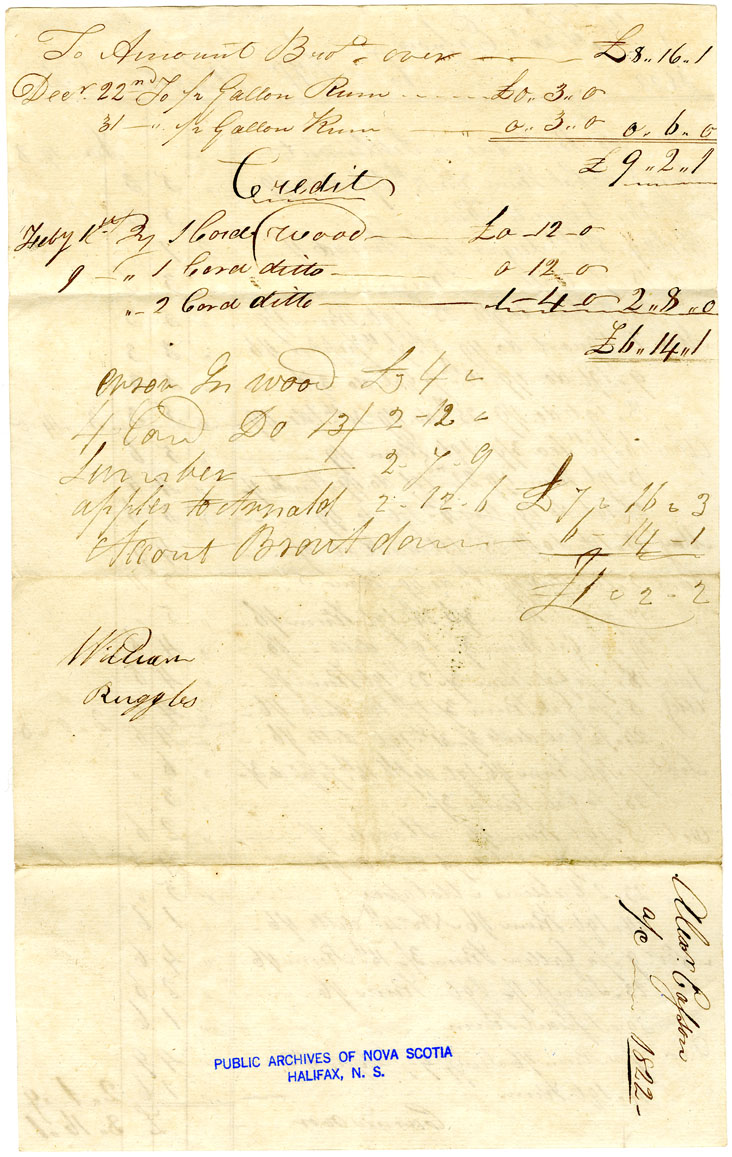 To Amount Bro^t. over — — £8,,16,,1
Decr. 22nd To 1/2 Gallon Rum — £0,,3,,0
31 — ,, 1/2 Gallon Rum — 0,,3,,0 0,,6,,0
£9,,2,,1
Credit
Feby 1st By 1 Cord Wood — £0-12-0
9 - ,, 1 Cord ditto — 0 12-0
,,- 2 Cord ditto — 1-4-0 2,,8,,0
£6,,14,,1
In wood £3 4 ,,
4 Cord Do 13/ 2-12 ,,
Lumber — 2-7-9
apples to Arnald 2-12-6 £7 ,, 16 ,, 3
Accout Brout down — 6-14-1
£1 ,, 2-2
William
Ruggles
Alexr.
a/c 1822-
PUBLIC ARCHIVES OF NOVA SCOTIA
HALIFAX, N. S.